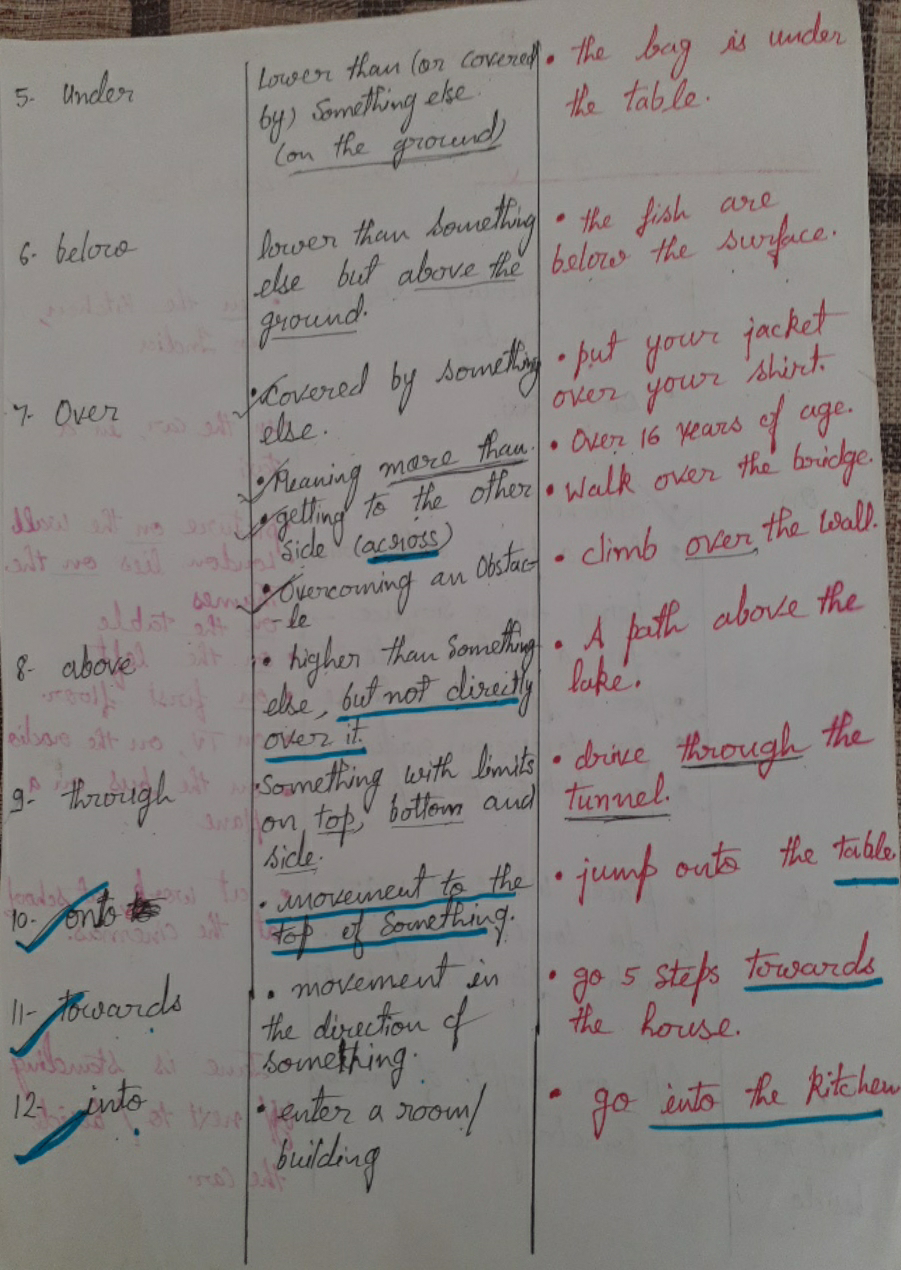 5- Under
Lower than (or covered
by) Something else.
(on the ground)
• the bag is under
the table.
6- below
lower than something
else but above the
ground.
• the fish are
below the surface.
7- Over
• Covered by something
else.
• Meaning more than.
• getting to the other
side (across)
• Overcoming an Obstac-
-le
• put your jacket
over your shirt.
• Over 16 years of age.
• Walk over the bridge.
• climb over the Wall.
8- above
• higher than Something
else, but not directly
over it.
• A path above the
lake.
9- through
• Something with limits
on top, bottom and
side.
• drive through the
tunnel.
10- onto
• movement to the
top of Something.
• jump onto the table.
11- towards
• movement in
the direction of
something.
• go 5 steps towards
the house.
12- into
• enter a room/
building
• go into the kitchen